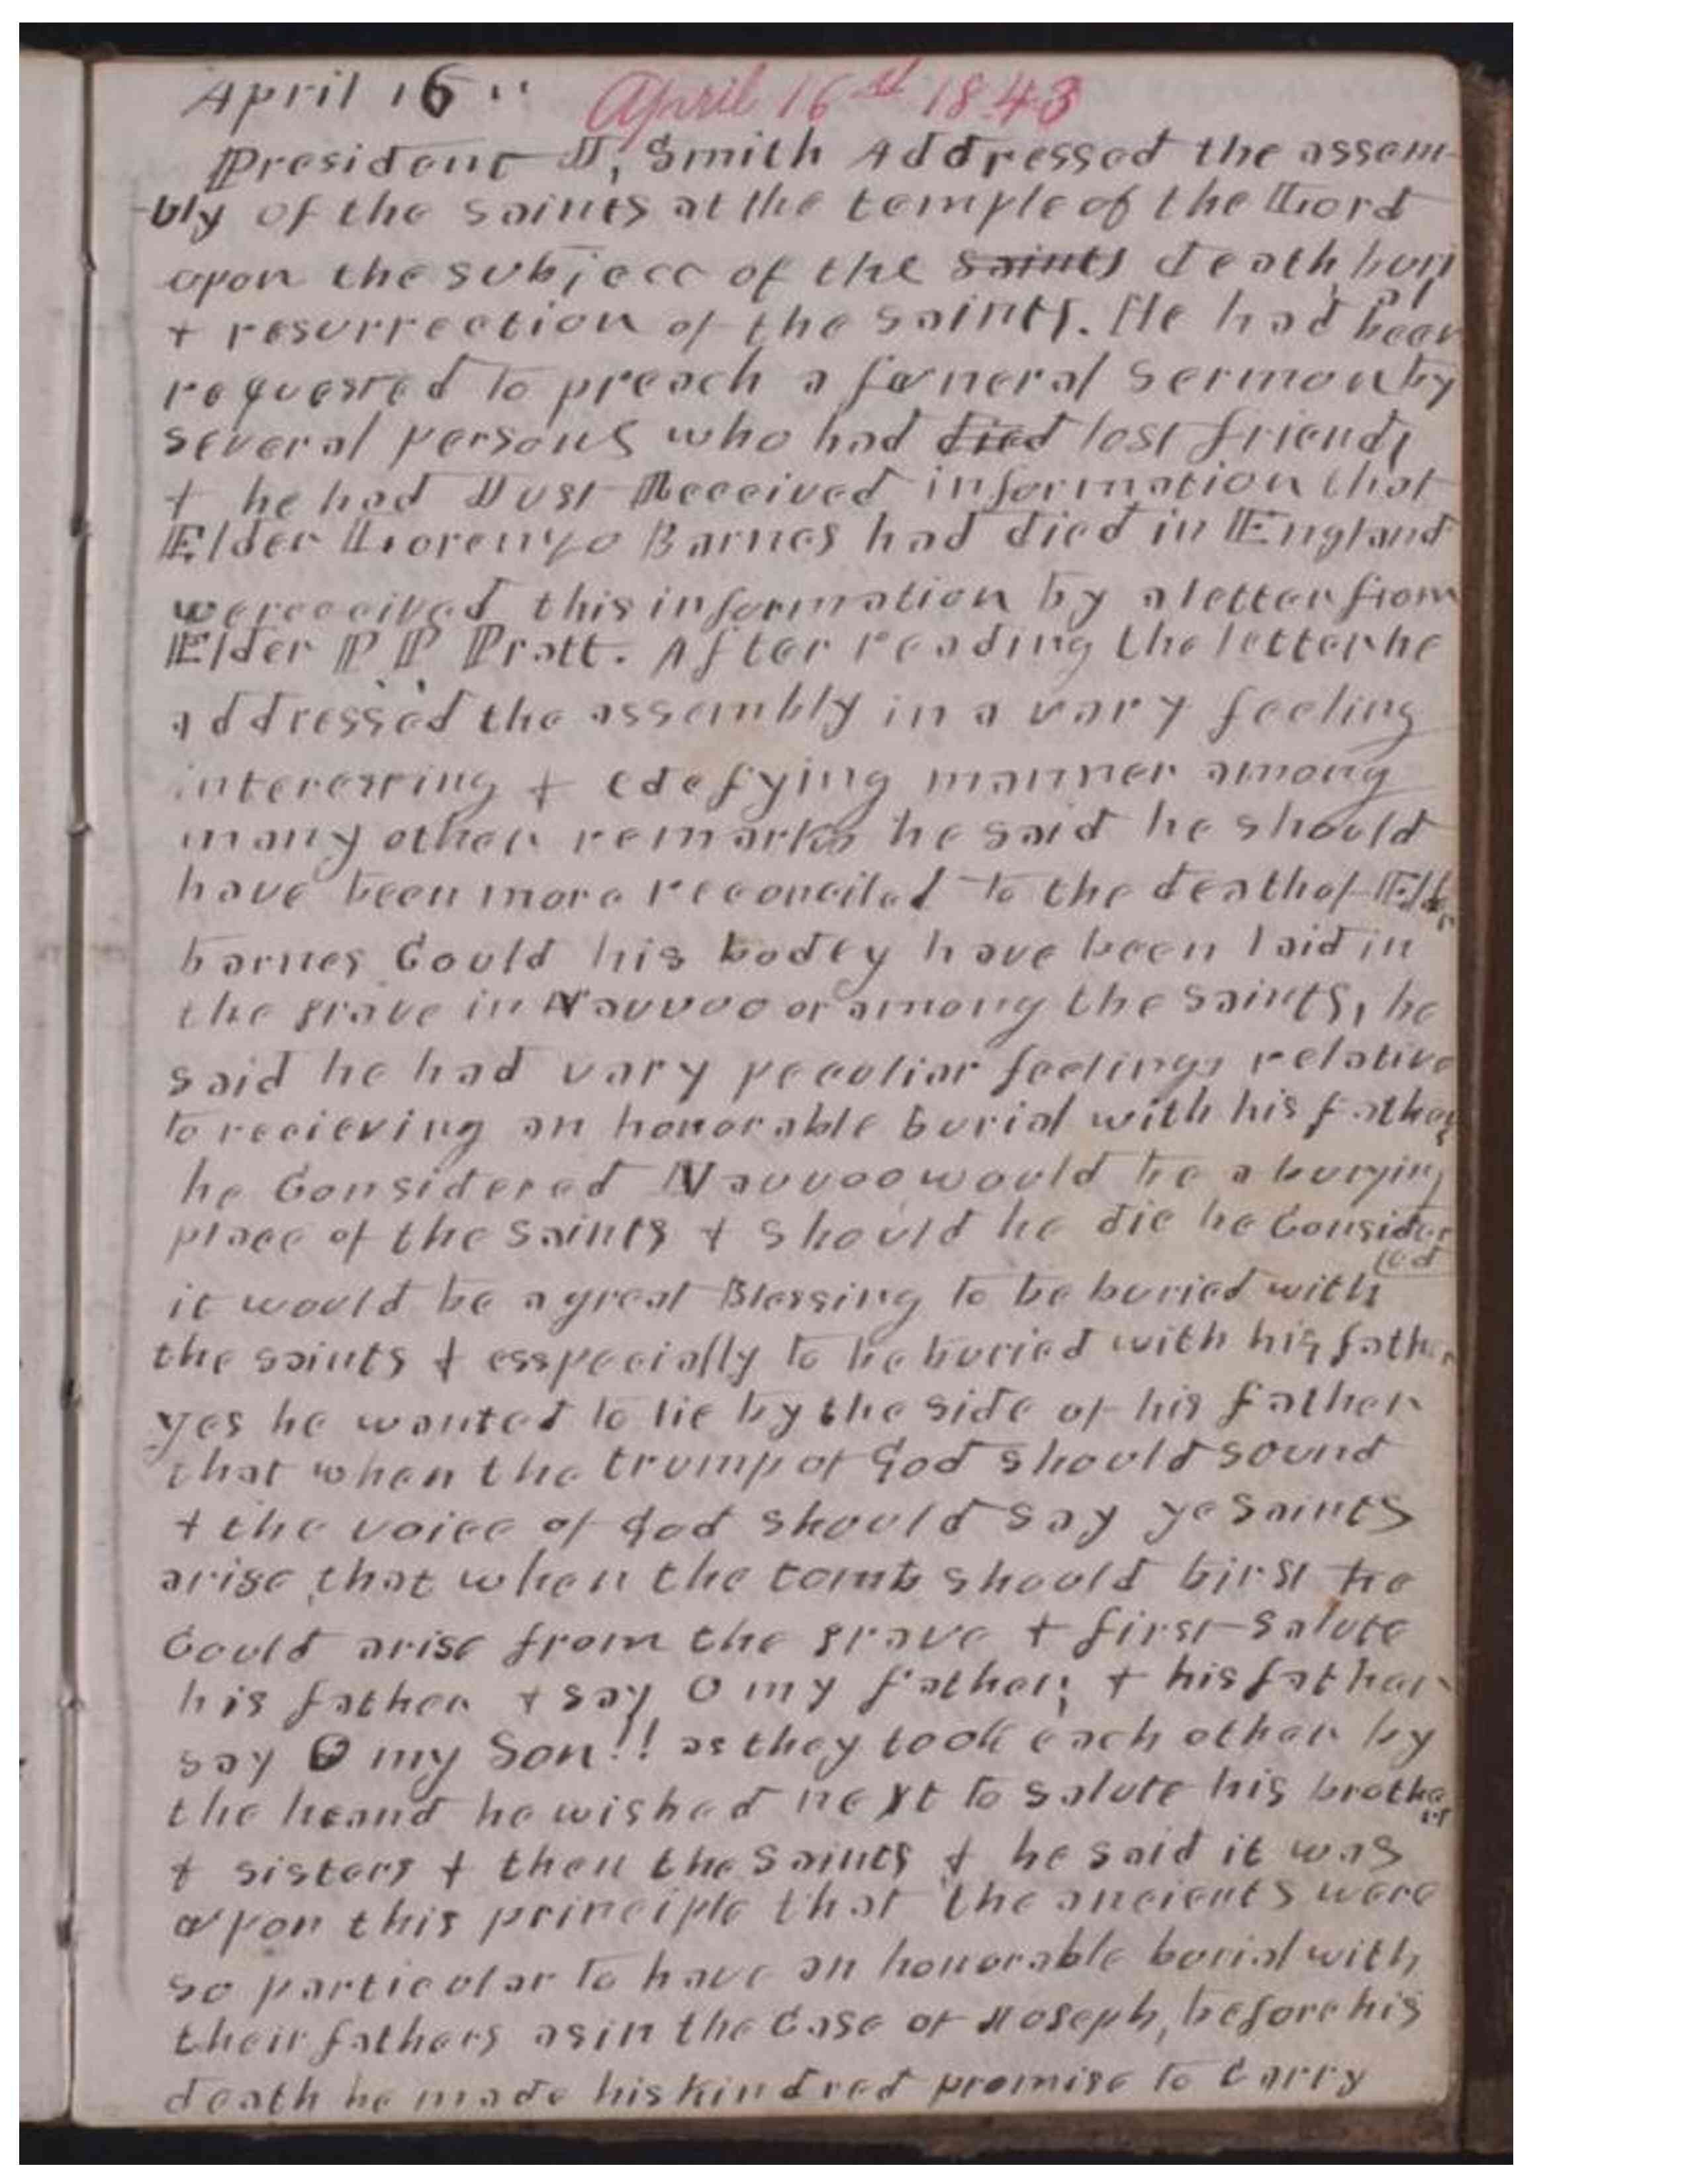 April 16 "   April 16st 1843
President J, Smith Addressed the assem-
-bly of the saints at the temple of the Lord
upon the subject of the saints death, buri
al
+ resurrection of the saints. He had been
requested to preach a funeral Sermon by
several persons who had died lost friends
+ he had Just Received information that
Elder Lorenzo Barnes had died in England
we receeived this information by a letter from
Elder P P Pratt. After reading the letter he
addressed the assembly in a vary feeling
interesting + edefying manner among
many other remarks he said he should
have been more reconciled to the death of Elder
barnes Could his bodey have been laid in
the grave in Nauvoo or among the saints, he
said he had vary peculiar feelings relative
to recieving an honorable burial with his father
he Considered Nauvoo would be a burying
place of the saints + should he die he Consider
ed
it would be a great Blessing to be buried with
the saints + esspecially to be buried with his father
yes he wanted to lie by the side of his father
that when the trump of God should sound
+ the voice of God should say ye Saints
arise, that when the tomb should birst he
Could arise from the grave + first salute
his father + say O my father; + his father
say O my Son!! as they took each other by
the heand he wished next to salute his brothe
rs
+ sisters + then the Saints + he said it was
upon this principle that the ancients were
so particular to have an honorable burial with
their fathers as in the Case of Joseph, before his
death he made his kindred promise to Carry